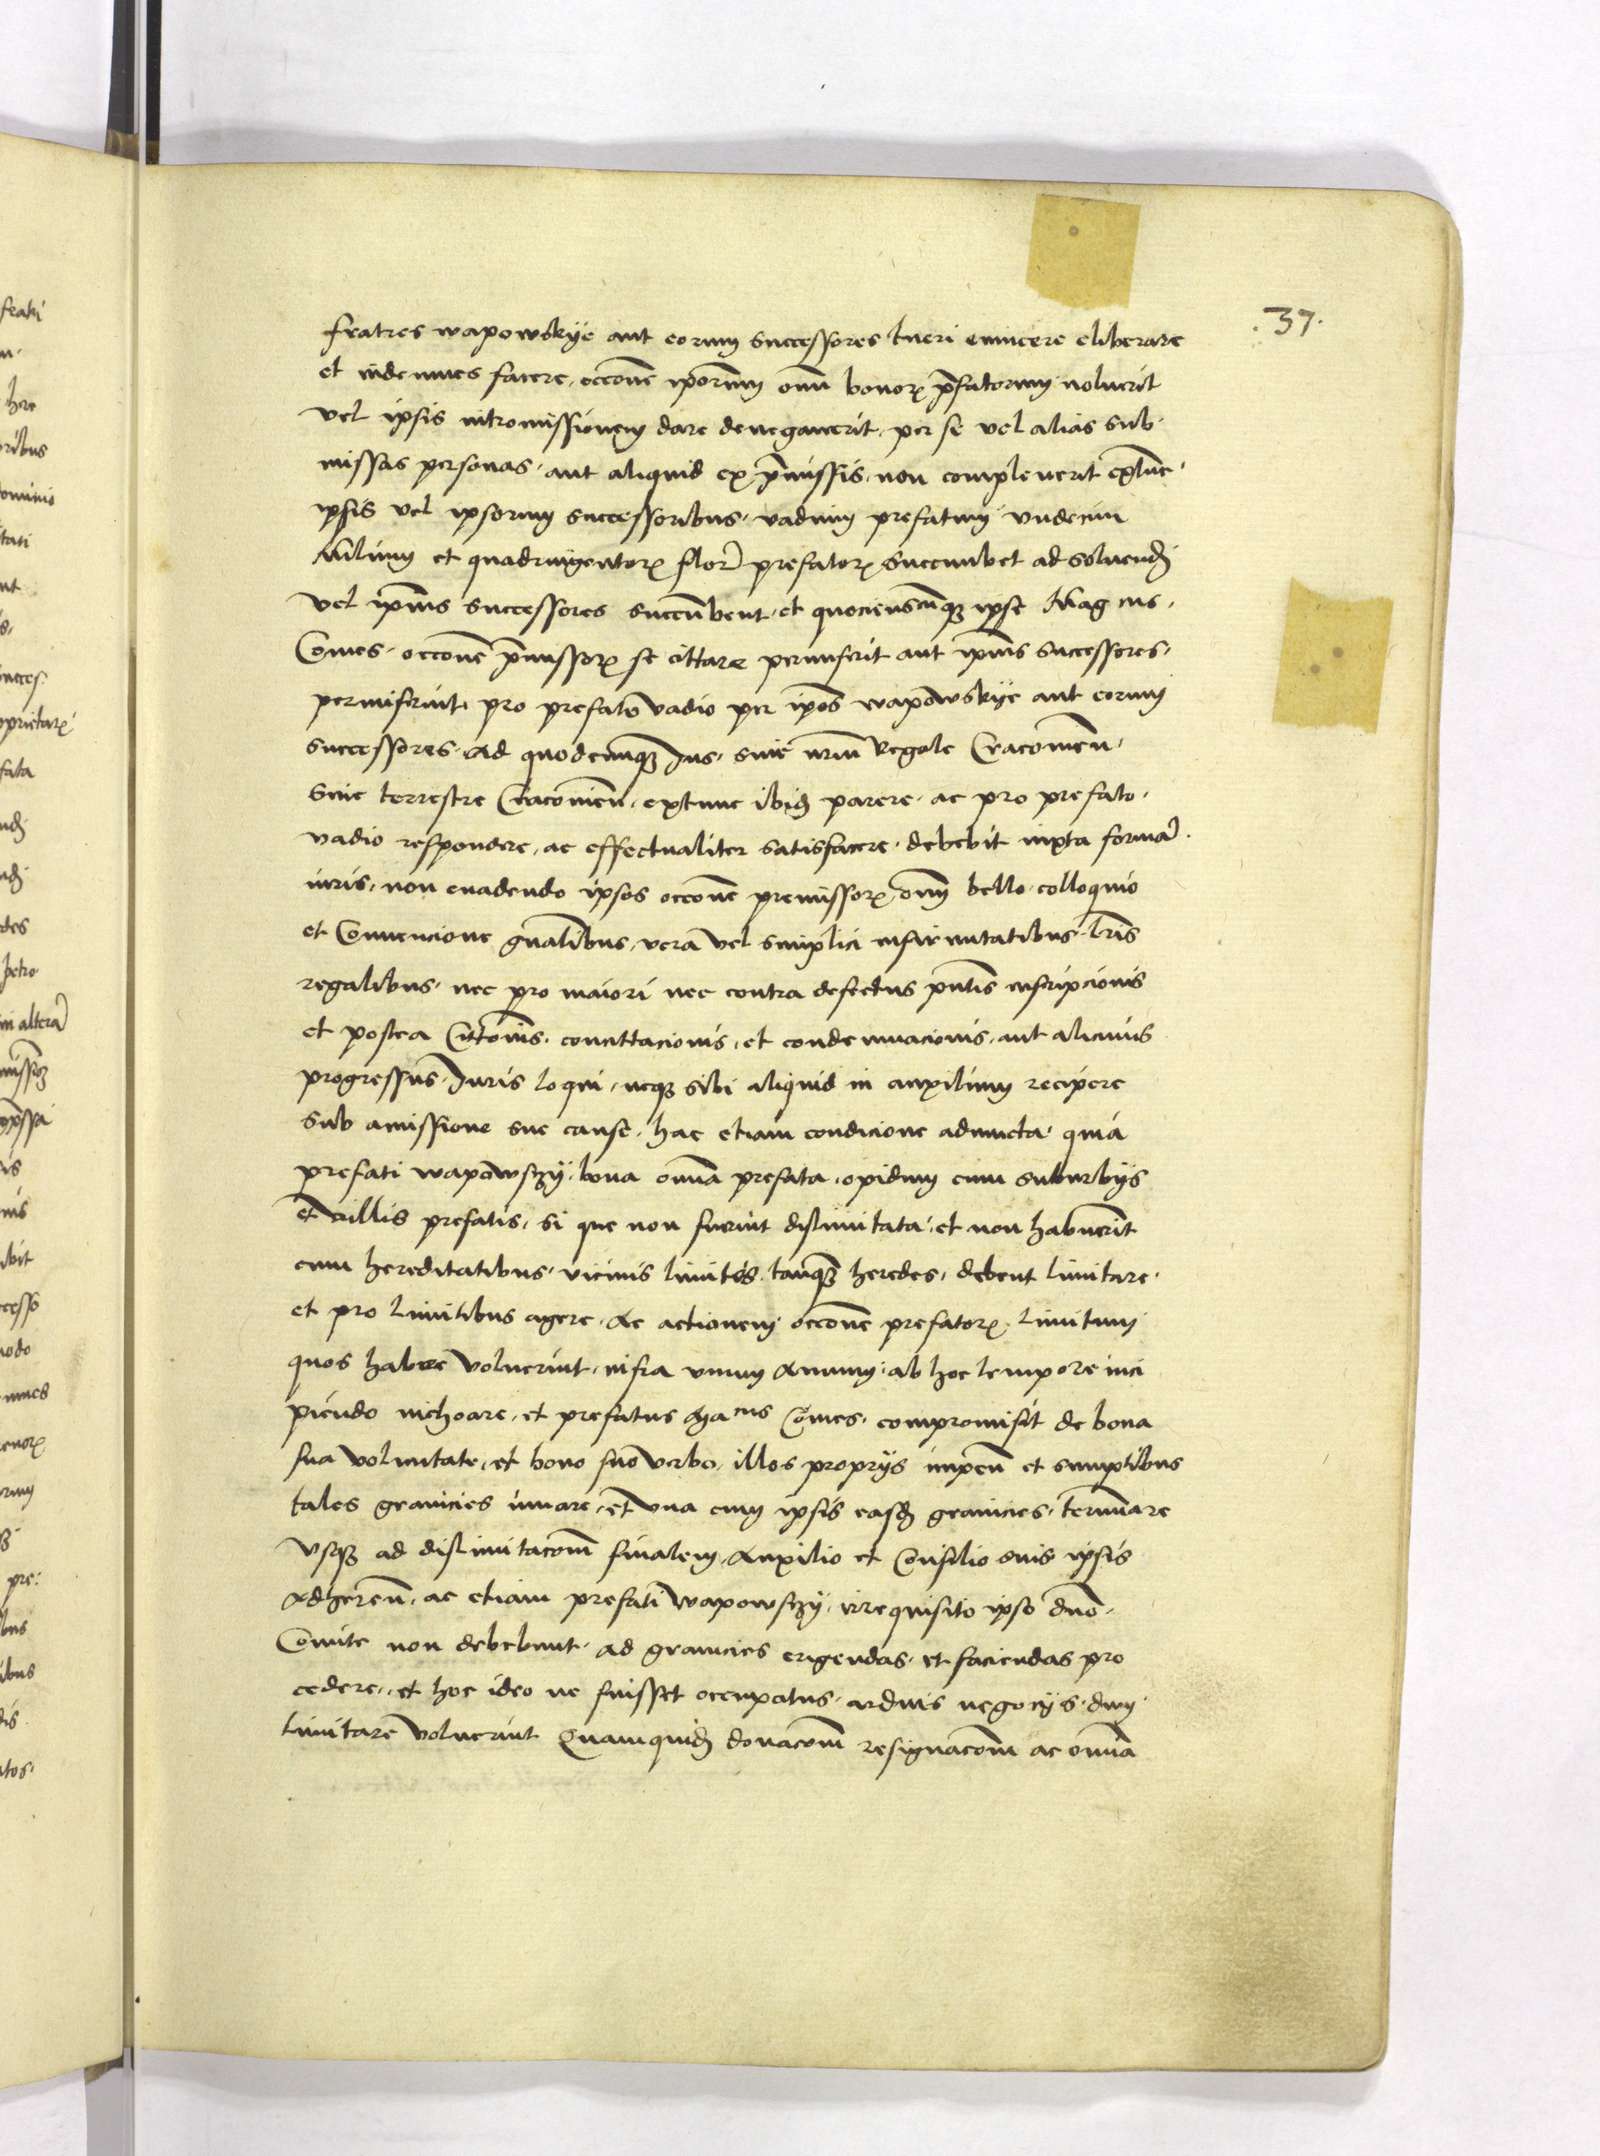 .37.
fratres wapowskye aut eorum successores tueri evincere eliberare
et indemnes facere, occone ipsorum omni bonorꝝ p̄fatorum noluerit
vel ipsis intromissionem dare denegaverit, per se vel alias sub-
missas personas, aut aliquid ex p̄missis, non compleverit extunc,
ipsis vel ipsorum successoribus, vadium prefatum undecim
Milium et quadringentorꝝ flor prefatorꝝ succumbet ad solvend
vel ipius successores succumbent, et quocienscumqꝫ ipse Mag cus,
Comes, occone p̄missorꝝ se cittare permiserit aut ipius successores,
permiserint, pro prefato vadio per ipos wapowskye aut eorum
successores, Ad quodcumqꝫ Jus, sive nrm̄ Regale Cracovien̄,
sive terrestre Cracovien̄, extunc ibid parere, ac pro prefato,
vadio respondere, ac effectualiter satisfacere, debebit iuxta formā
iuris, non evadendo ipsos occone premissorꝝ, om̄ bello, colloquio
et Convencione gn̄alibus, vera vel simplici infirmitatibus, lr̄is
regalibus, nec pro maiori nec contra defectus pn̄tis inscripcionis
et postea Citt̄onis, concittacionis, et condemnacionis, aut alicuius
progressus Juris loqui, neqꝫ sibi aliquid in auxilium recipere
sub amissione sue cause, hac etiam condicione adiuncta, quia
prefati wapowsczy, bona omīa prefata, opidum cum suburbys
et villis prefatis, si que non fuerint dislimitata, et non habuerīt
cum hereditatibus, vicinis limites, tamqꝫ heredes, debent limitare,
et pro limitibus agere, Ac actionem occone prefatorꝝ limitum
quos habere voluerint, infra unum Annum, ab hoc tempore inci
piendo inchoare, et prefatus Ma cus Comes, compromisit de bona
sua voluntate, et bono suo verbo, illos proprys impen̄ et sumptibus
tales granicies iuvare, et una cum ipsis easd granicies, terminare
Usqꝫ ad dislimitacom finalem, Auxilio et Consilio suis ipsis
Adheren̄, ac etiam prefati wapowsczy, irrequisito ipso dno,
Comite non debebunt, ad granicies erigendas, et faciendas pro
cedere, et hoc ideo ne fuisset occupatus, arduis negocys, dum
limitare voluerint Quamquid donacom resignacom ac omīa